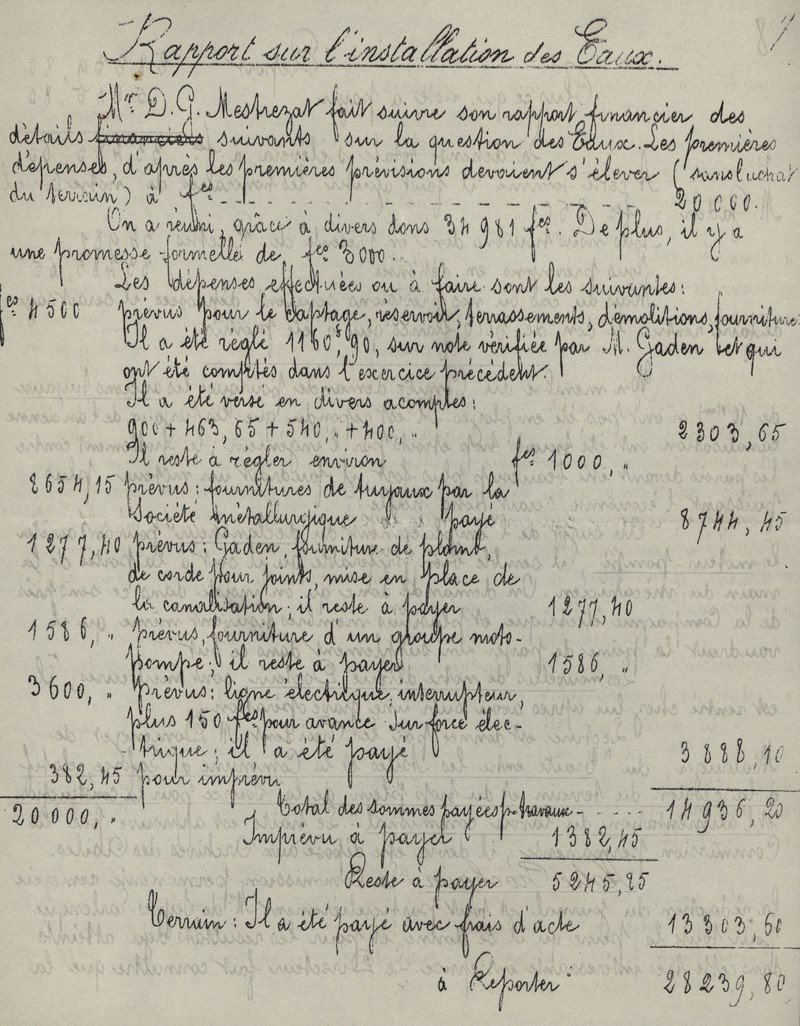 7
Rapport sur l'installation des Eaux.
Mr. D. G. Mestrezat fait suivre son rapport financier des
détails financiers suivants sur la question des Eaux. Les premières
dépenses, d'après les premières prévisions devaient s'élever (sans l'achat
du terrain) à fcs. - - - - - - - - - - - - - - - 20000.
On a réuni, grâce à divers dons 34981 fcs. De plus, il y a
une promesse formelle de fcs 3000.
Les dépenses effectuées ou à faire sont les suivantes:
fcs 4500 prévus pour le captage, réservoir, terrassements, démolitions, fourniture
Il a été réglé 1160f,90, sur note vérifiée par M. Gaden et qui
ont été comptés dans l'exercice précédent.
Il a été versé en divers acomptes:
900 + 463,65 + 540, " + 400, " 2303,65
Il reste à régler environ fcs 1000, "
8654,15 prévus: fournitures de tuyaux par la
Société métallurgique payé 8744,45
1277,40 prévus: Gaden, fourniture de plomb,
de corde pour joints, mise en place de
la canalisation; il reste à payer 1277,40
1586, " prévus, fourniture d'un groupe moto-
pompe; il reste à payer 1586, "
3600, " prévus: ligne électrique, interrupteur,
plus 150 fcs pour avance sur force élec-
trique; il a été payé 3888,10
382,45 pour imprévu
20000, " Total des sommes payées pr. travaux - - - - 14936,20
Imprévu à payer 1382,45
Reste à payer 5245,85
Terrain: Il a été payé avec frais d'acte 13303,60
à Reporter 28239,80